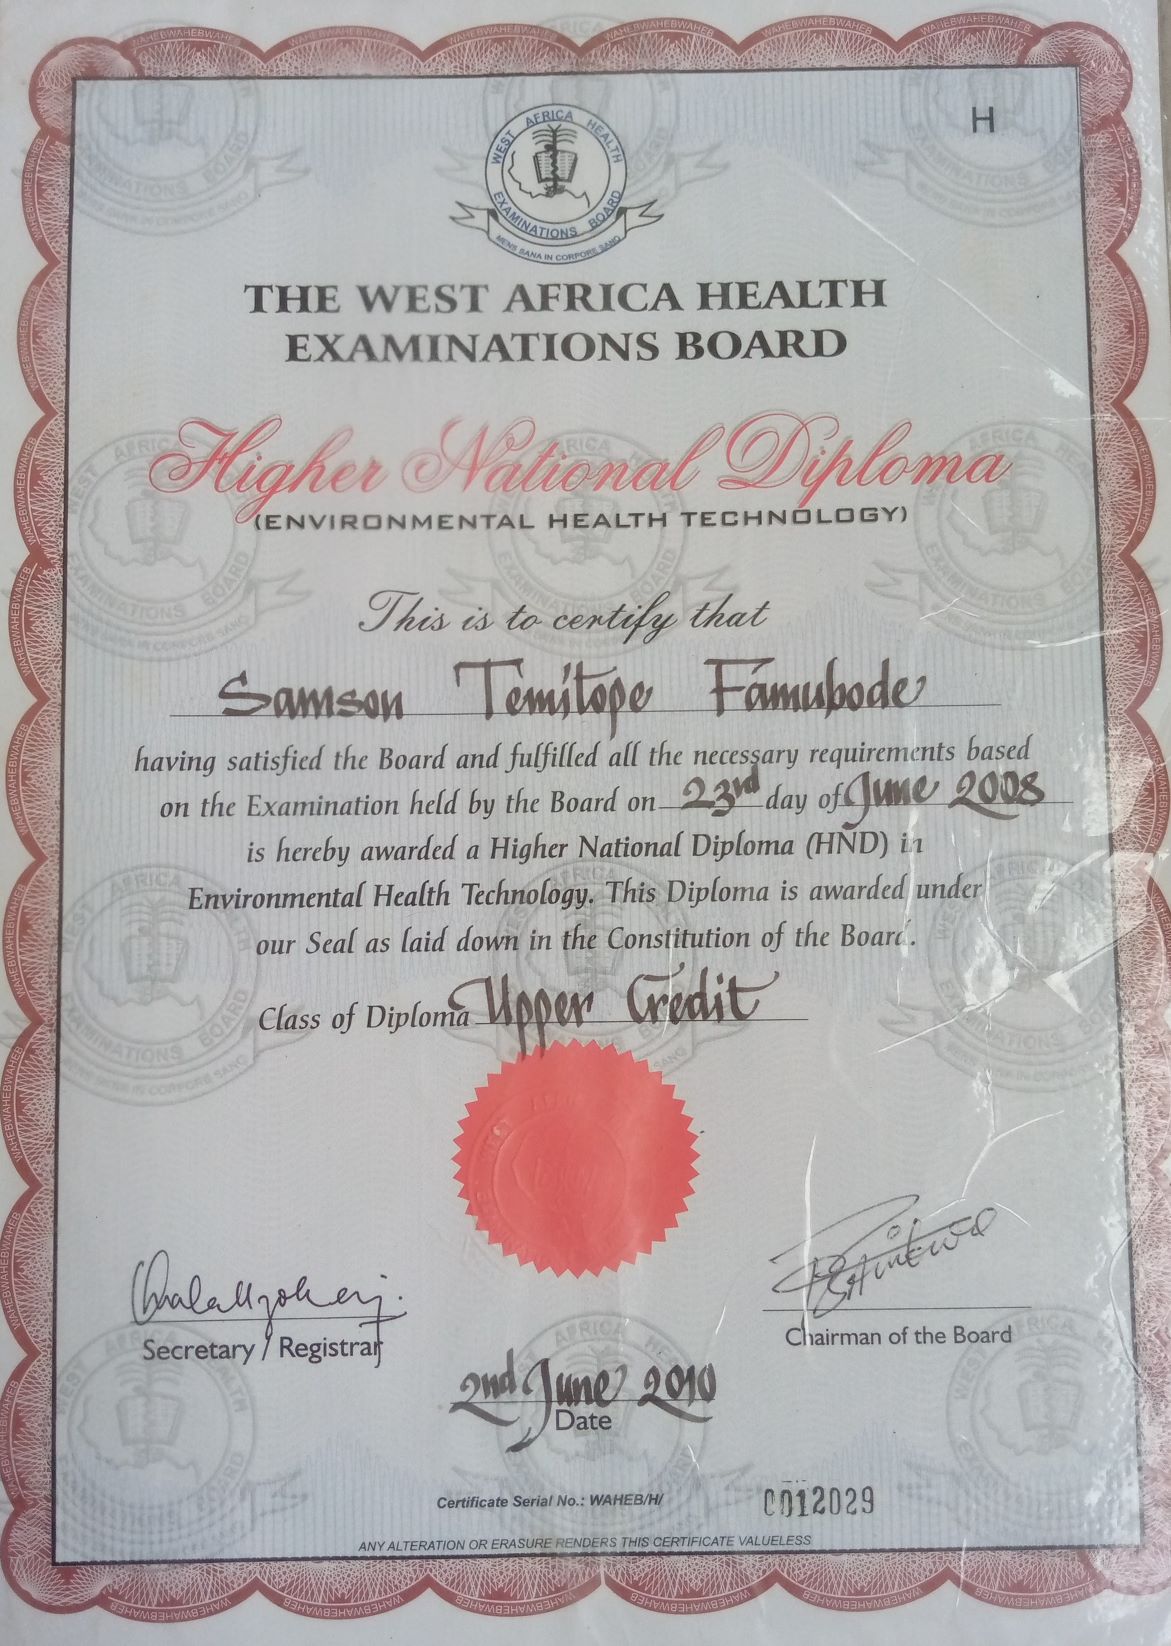 H
WEST AFRICA HEALTH
EXAMINATIONS BOARD
MENS SANA IN CORPORE SANO
THE WEST AFRICA HEALTH
EXAMINATIONS BOARD
Higher National Diploma
(ENVIRONMENTAL HEALTH TECHNOLOGY)
This is to certify that
Samson Temitope Famubode
having satisfied the Board and fulfilled all the necessary requirements based
on the Examination held by the Board on 23rd day of June 2008
is hereby awarded a Higher National Diploma (HND) in
Environmental Health Technology. This Diploma is awarded under
our Seal as laid down in the Constitution of the Board.
Class of Diploma Upper Credit
Secretary / Registrar
Chairman of the Board
2nd June 2010
Date
Certificate Serial No.: WAHEB/H/ 0012029
ANY ALTERATION OR ERASURE RENDERS THIS CERTIFICATE VALUELESS